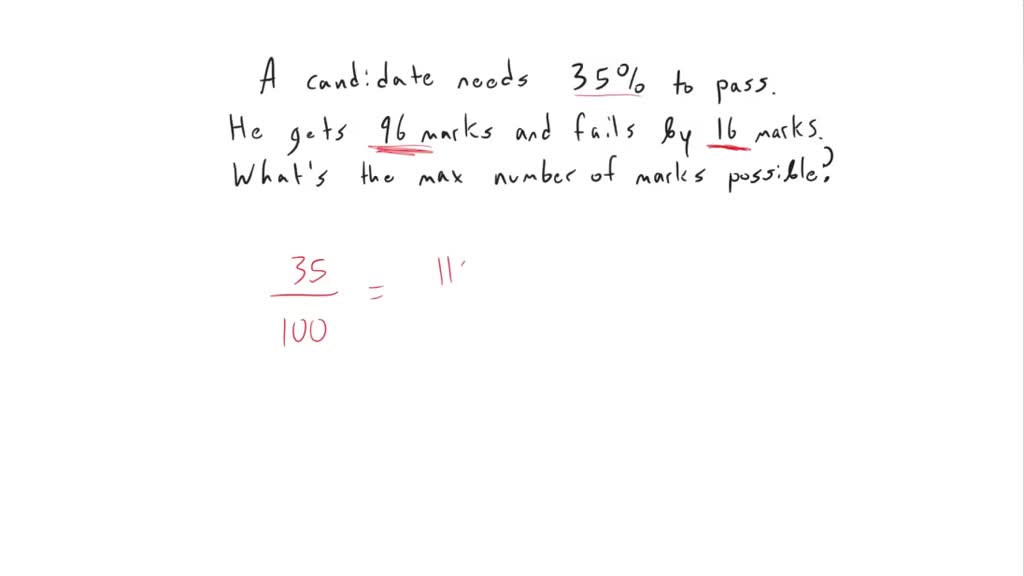 A candidate needs 35% to pass.
He gets 96 marks and fails by 16 marks.
What's the max number of marks possible?
35
100
=
11